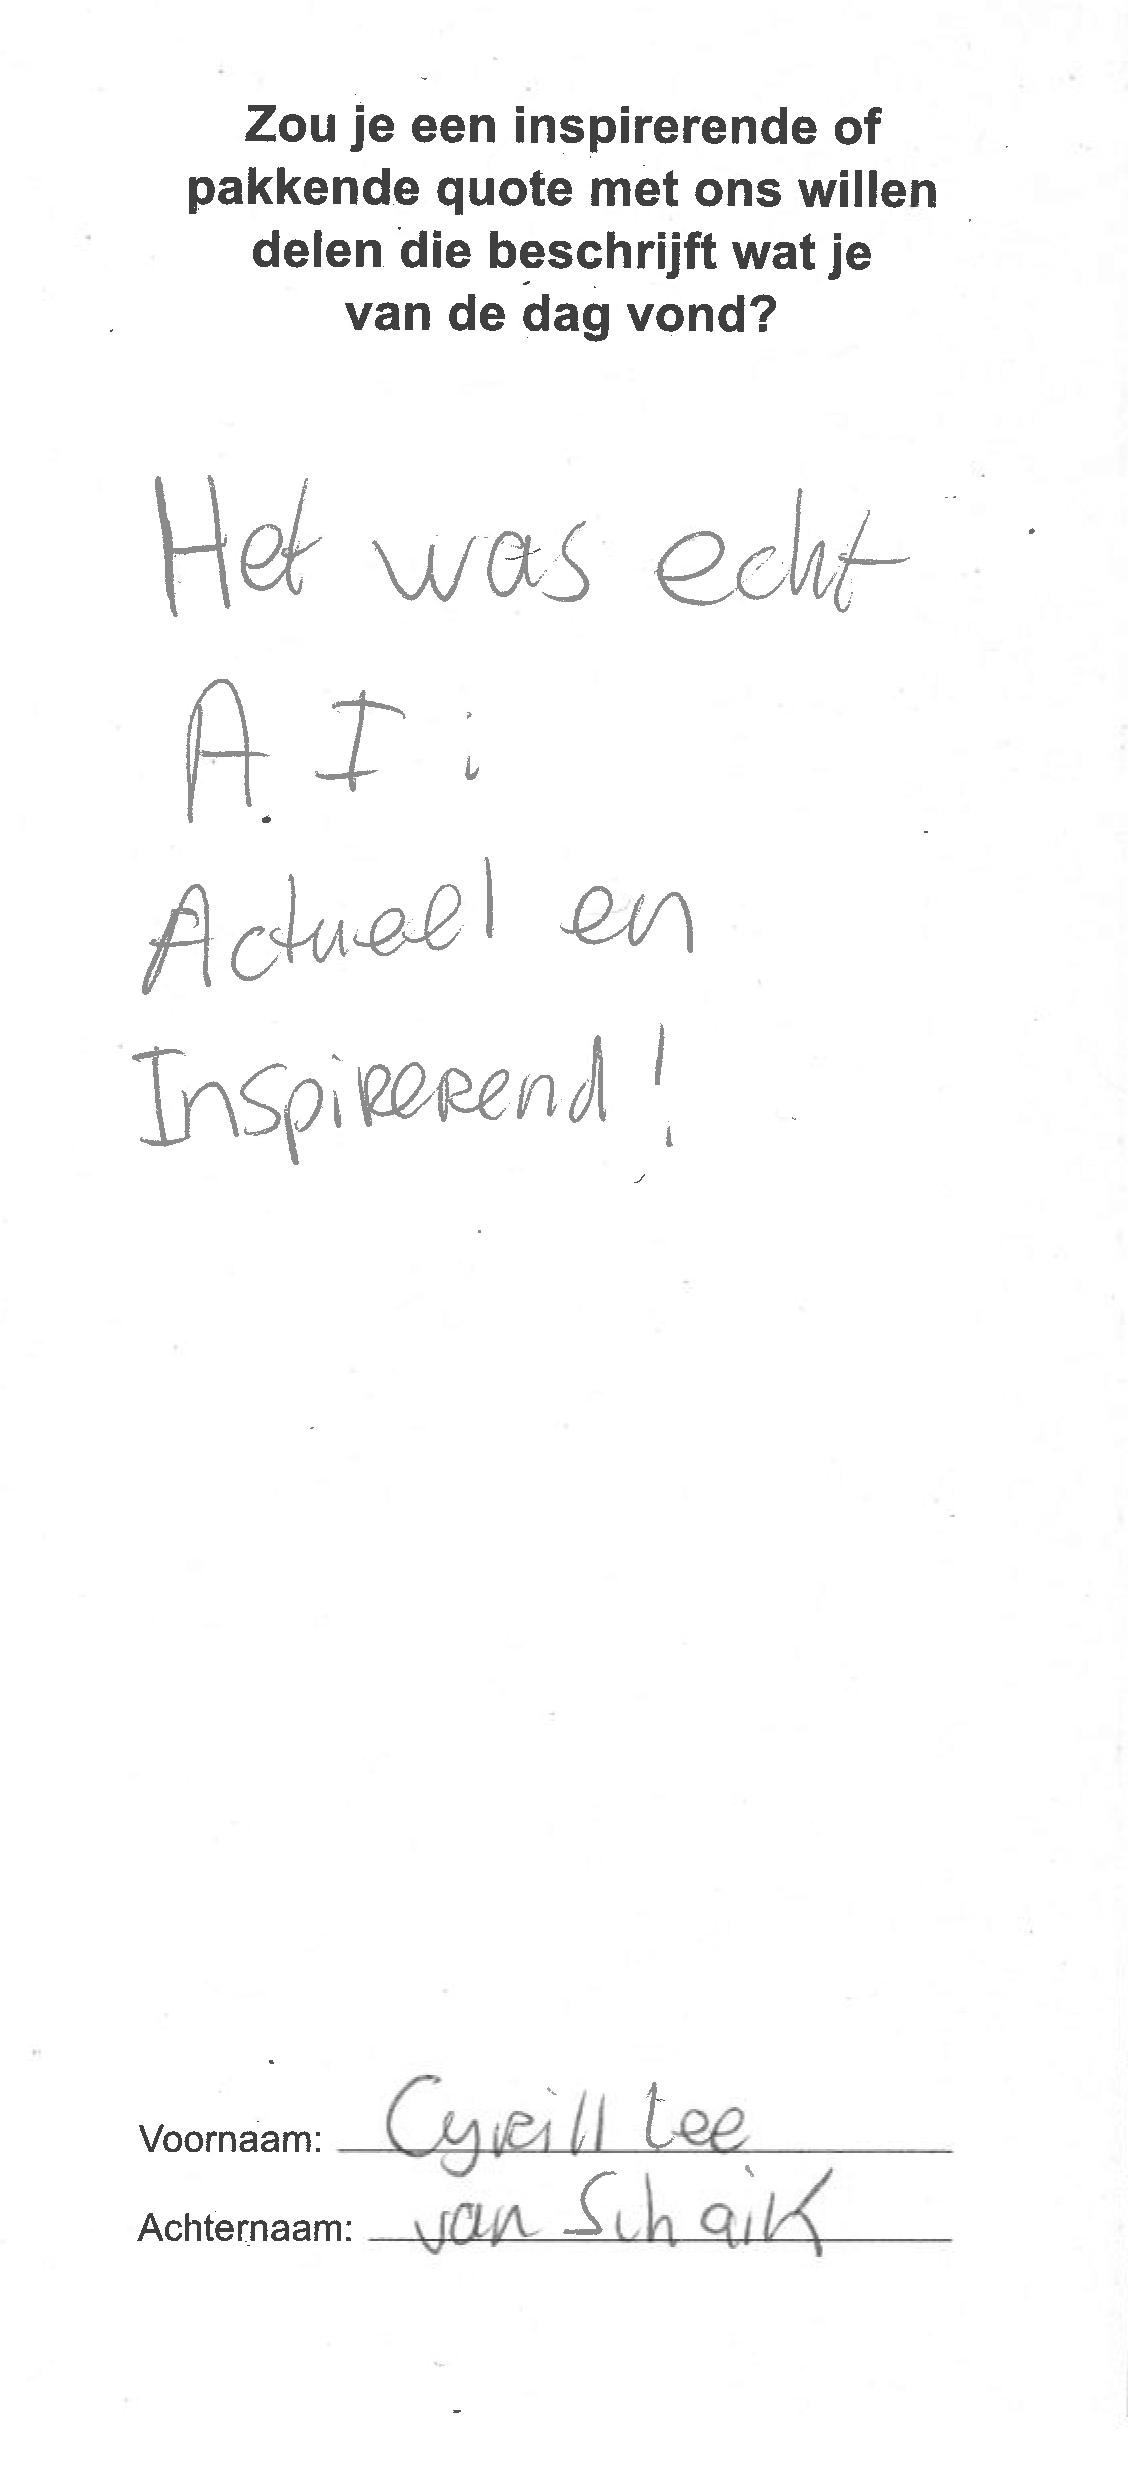 Zou je een inspirerende of
pakkende quote met ons willen
delen die beschrijft wat je
van de dag vond?
Het was echt
A.I:
Actueel en
Inspirerend!
Voornaam: Cyrill Lee
Achternaam: van Schaik